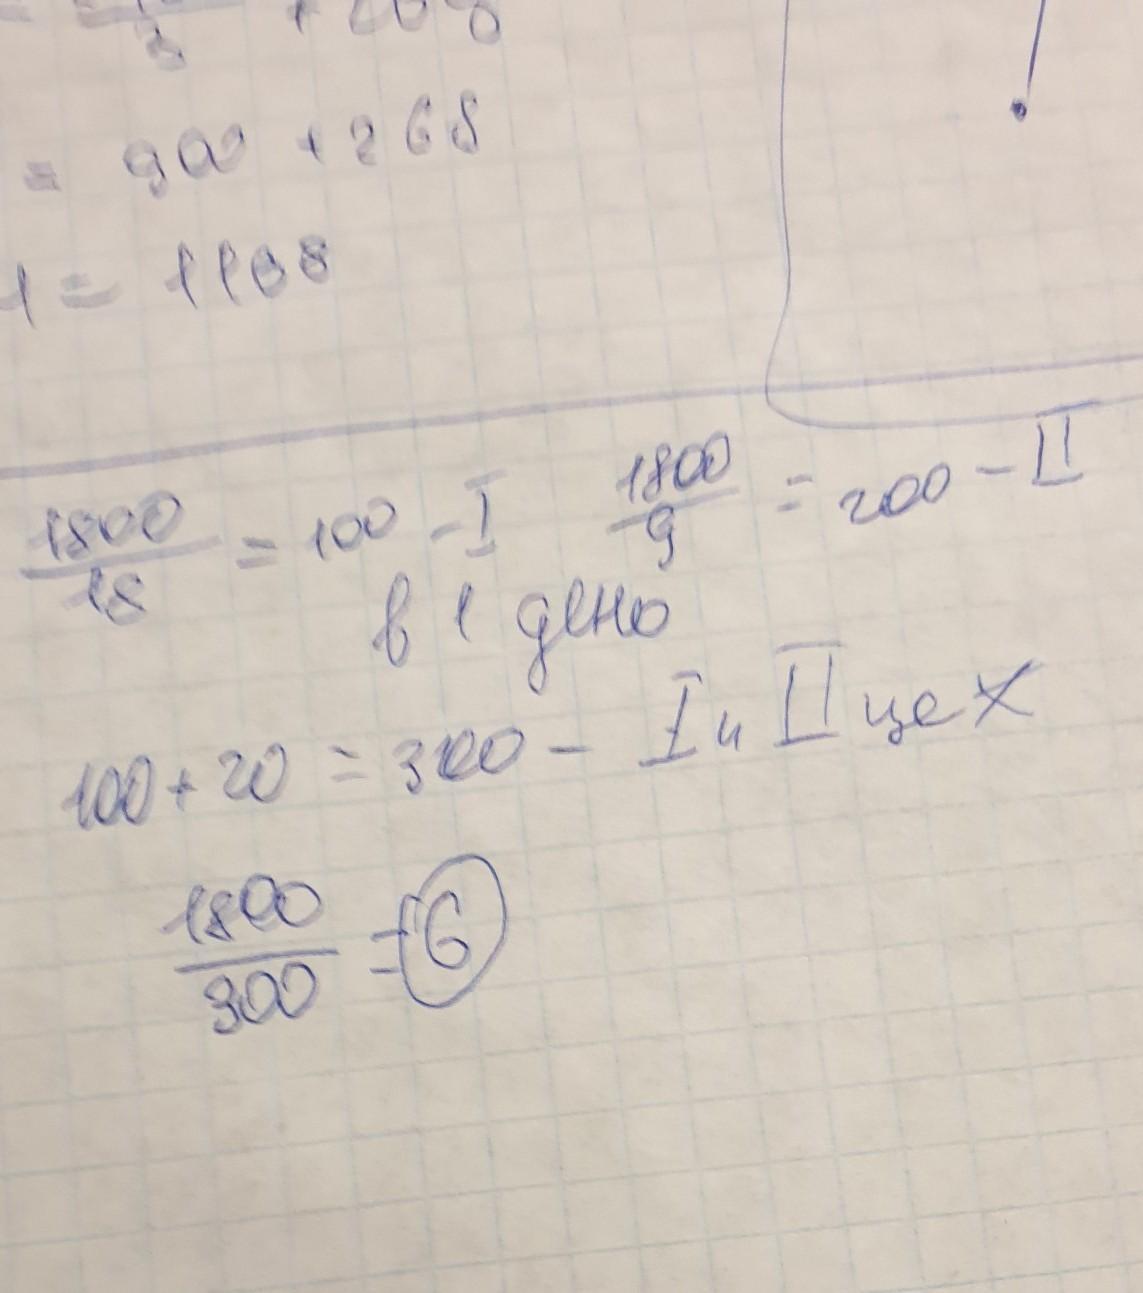 = 900 + 268
1 = 1168
1800/18 = 100 - I 1800/9 = 200 - II
в 1 день
100 + 20 = 300 - I и II цех
1800/300 = 6